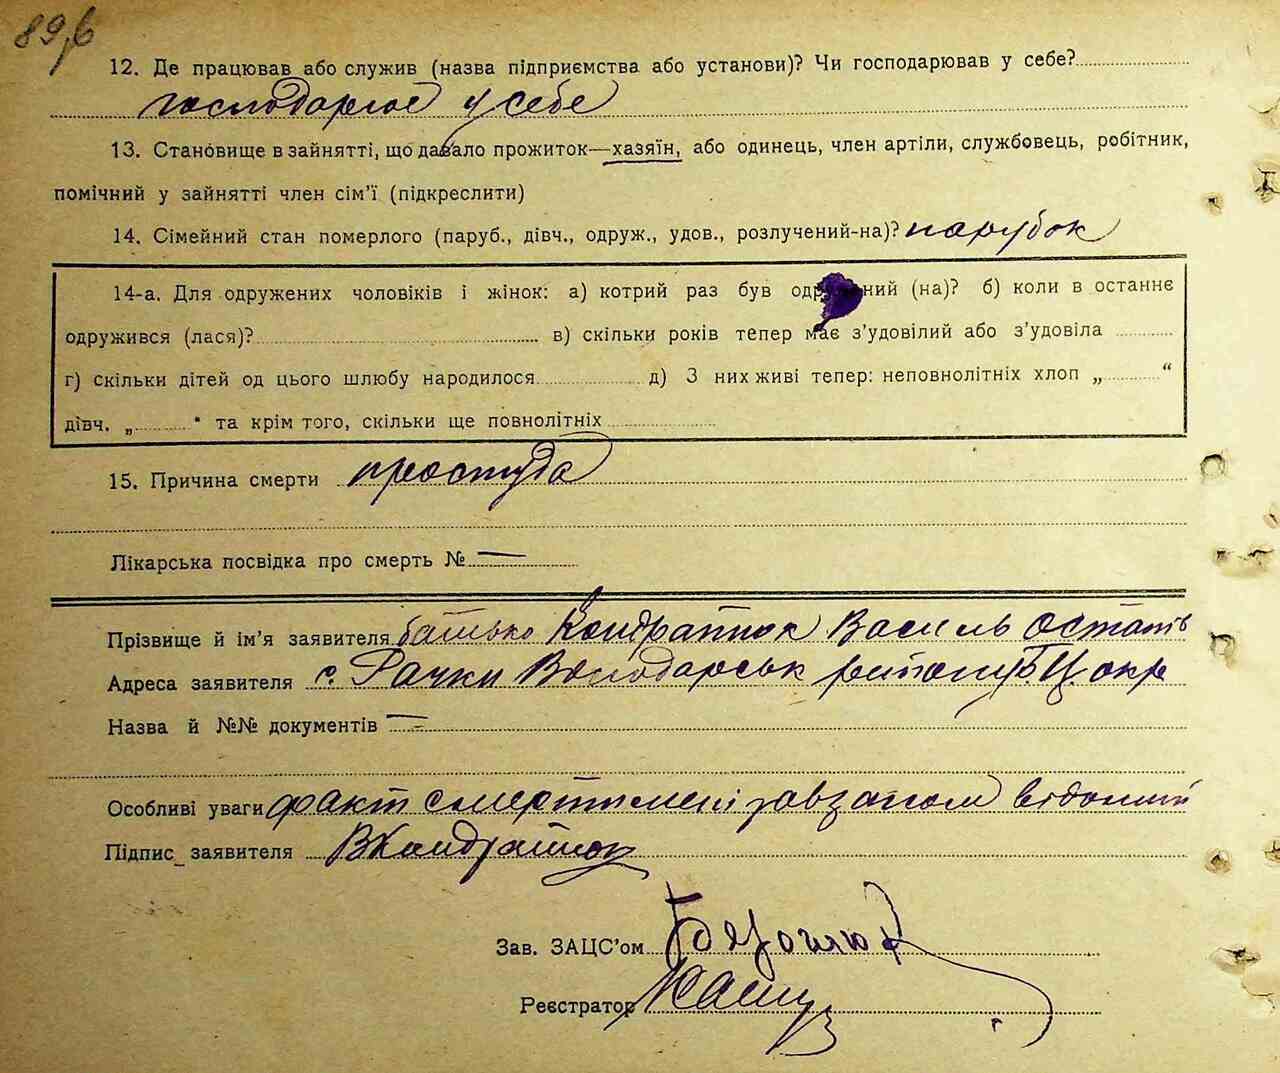 12. Де працював або служив (назва підприємства або установи)? Чи господарював у себе?
господарює у себе
13. Становище в зайнятті, що давало прожиток—хазяїн, або одинець, член артіли, службовець, робітник,
помічний у зайнятті член сім'ї (підкреслити)
14. Сімейний стан померлого (паруб., дівч., одруж., удов., розлучений-на)? парубок
14-а. Для одружених чоловіків і жінок: а) котрий раз був одружений (на)? б) коли в останнє
одружився (лася)? в) скільки років тепер має з'удовілий або з'удовіла
г) скільки дітей од цього шлюбу народилося д) З них живі тепер: неповнолітніх хлоп „ “
дівч. „ “ та крім того, скільки ще повнолітніх
15. Причина смерти простуда
Лікарська посвідка про смерть № —
Прізвище й ім'я заявителя батько Кондратюк Василь Остапів
Адреса заявителя с. Рачки Володарськ району Б.Ц. окр
Назва й №№ документів —
Особливі уваги факт смерти мені завзагсом відомий
Підпис заявителя ВКондратюк
Зав. ЗАЦС'ом
Реєстратор